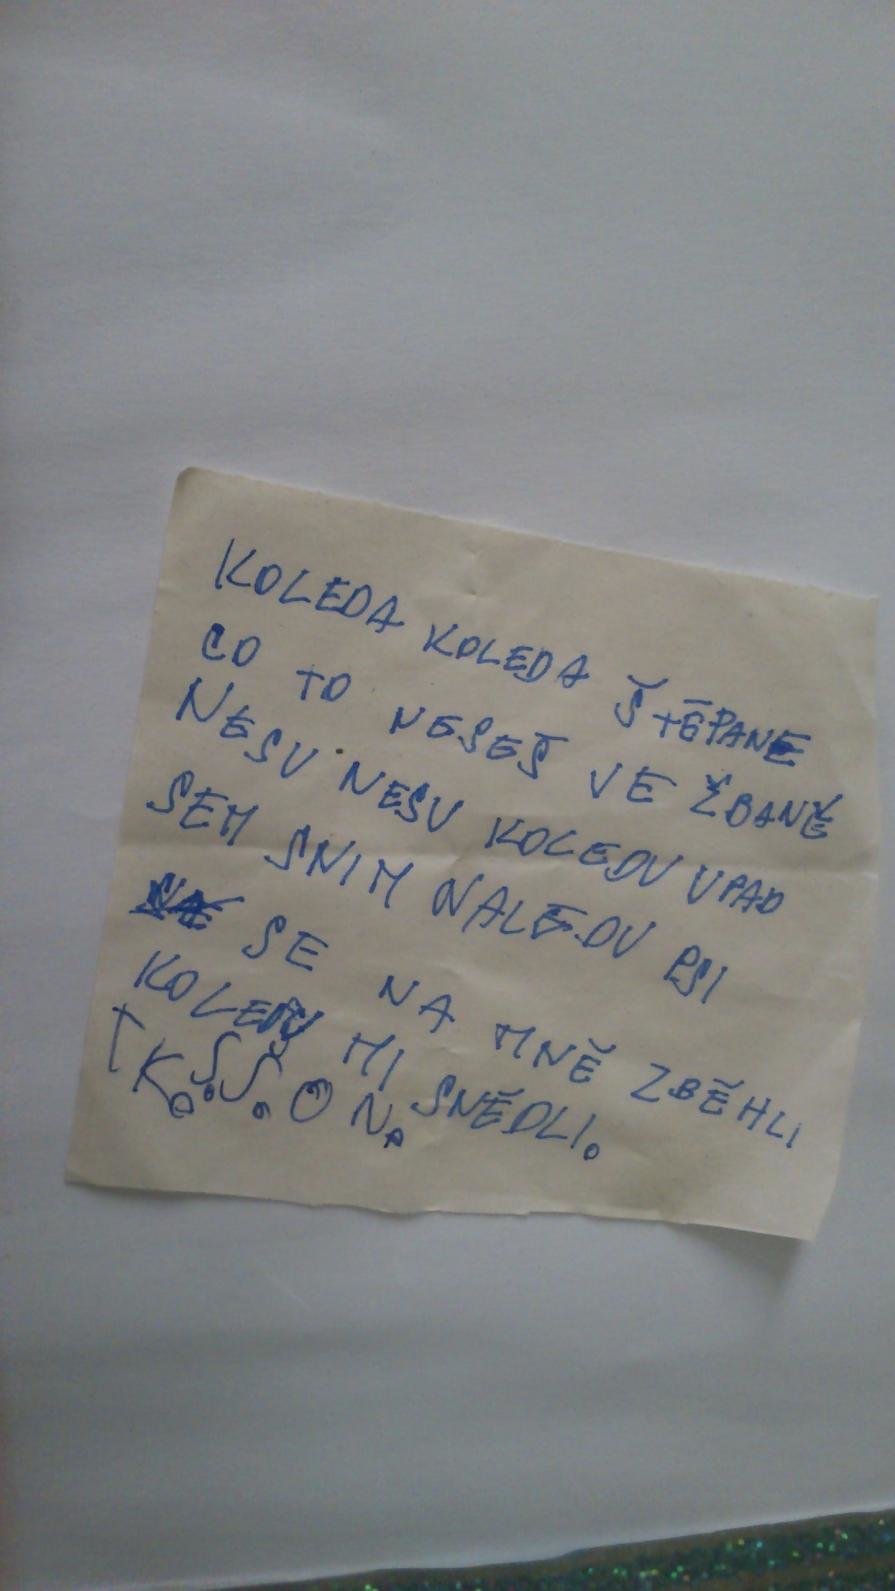 KOLEDA KOLEDA ŠTĚPANE
CO TO NESEŠ VE ŽBANĚ
NESU NESU KOLEDU UPAD
SEM SNIM NALEDU PSI
SE NA MNĚ ZBĚHLI
KOLEDU MI SNĚDLI.